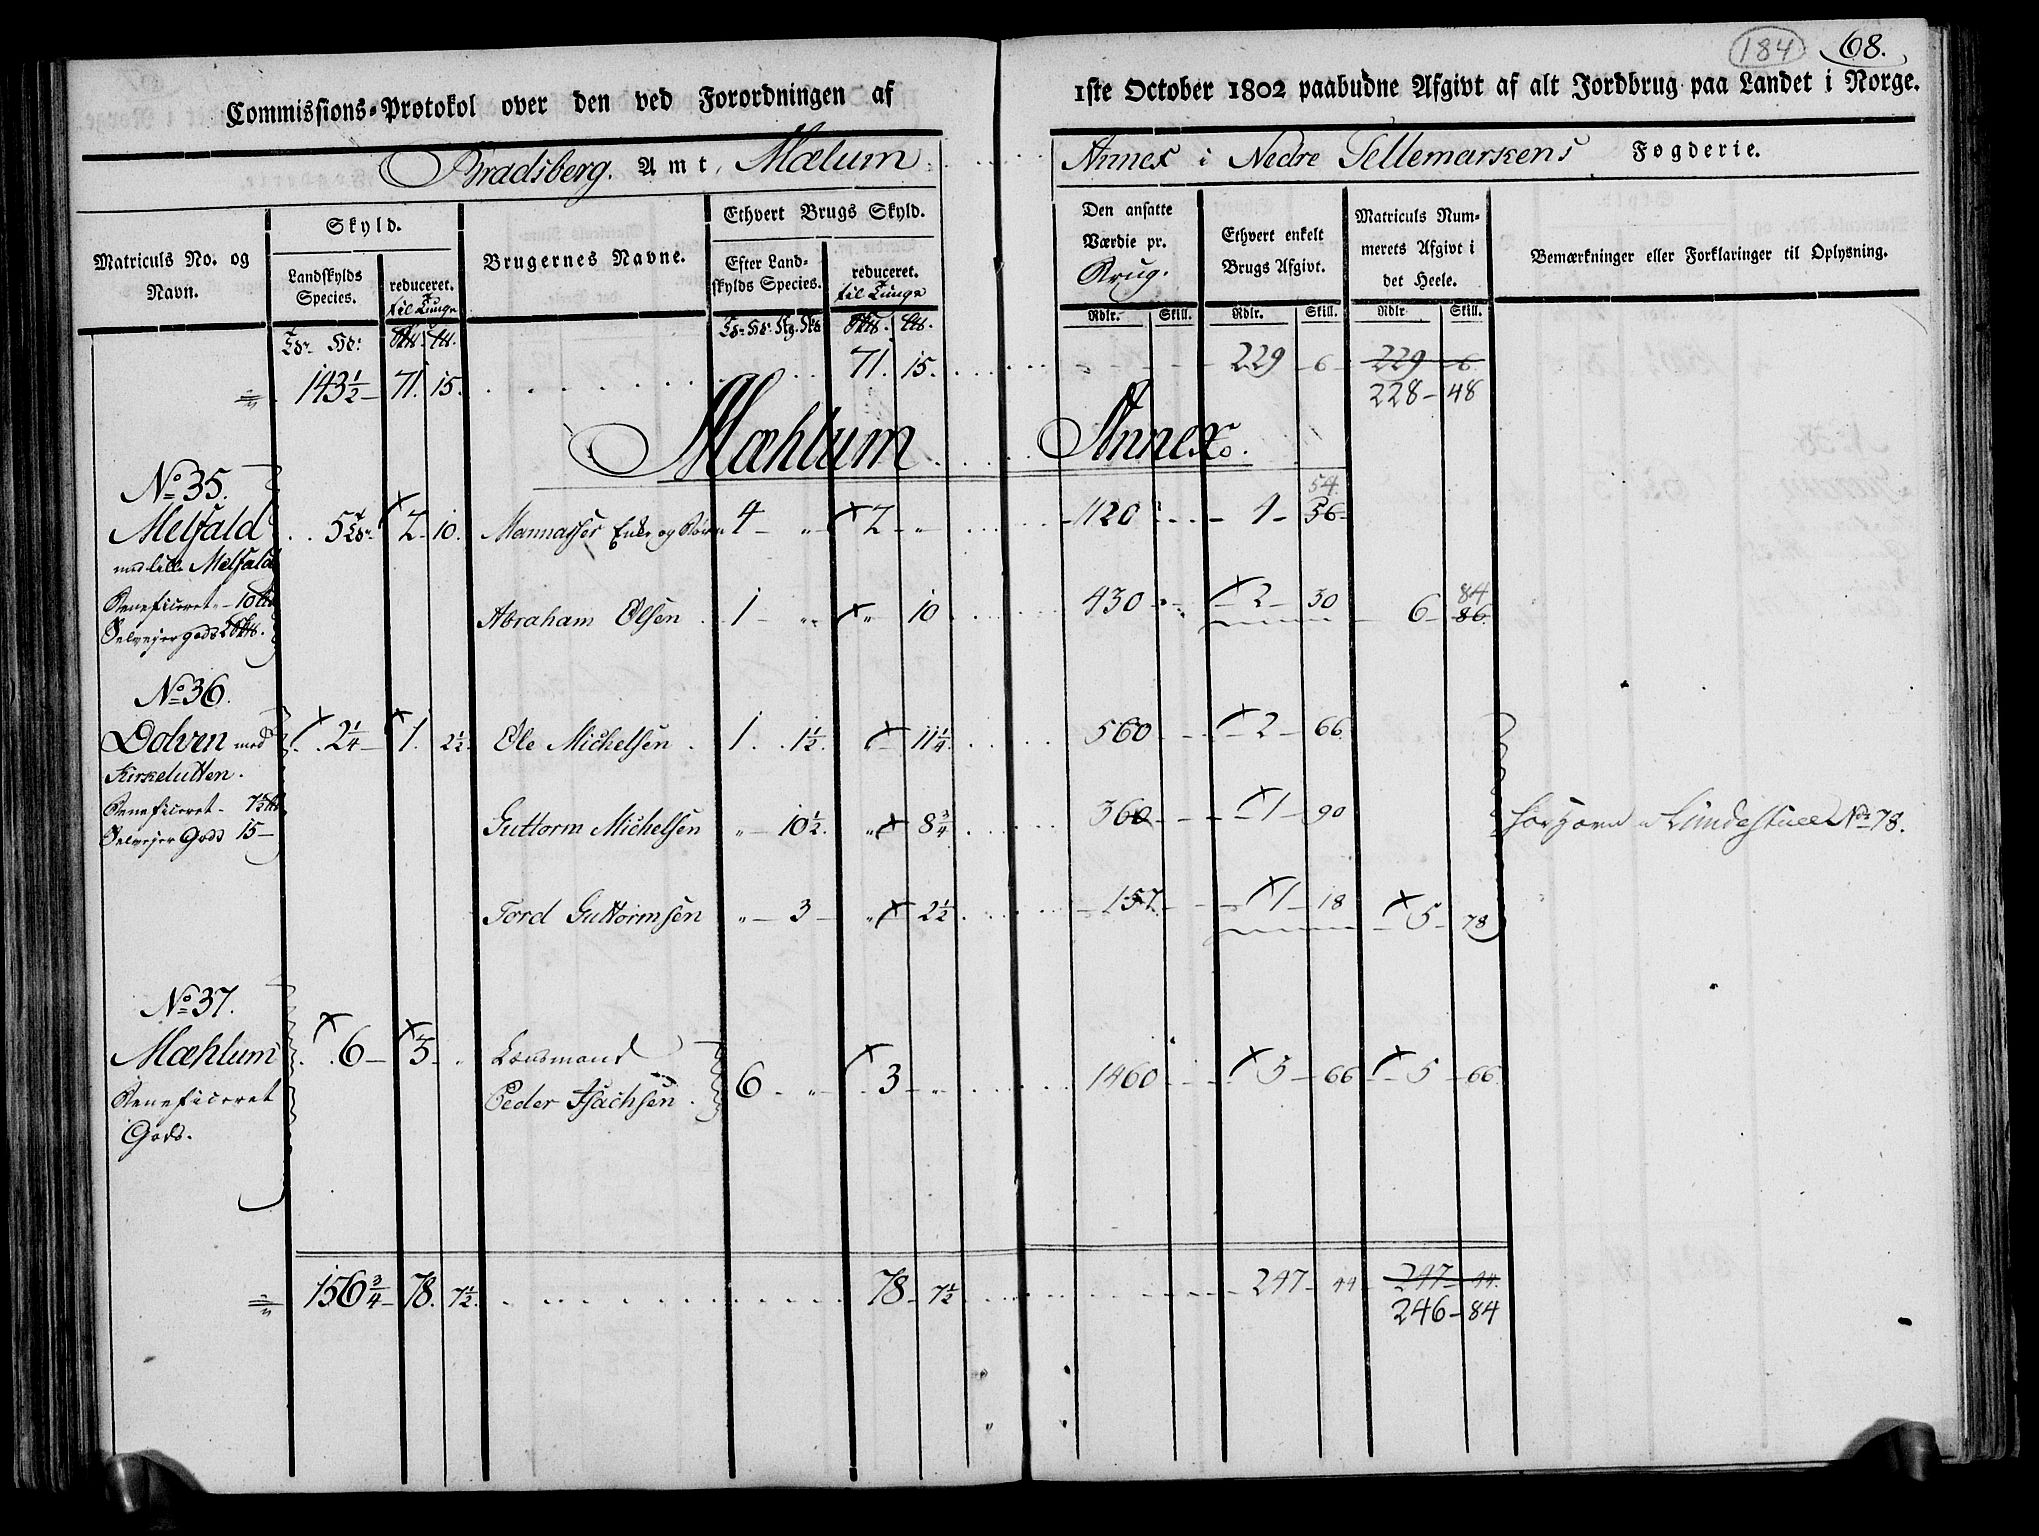 184 68.
Commissions-Protokol over den ved Forordningen af 1ste October 1802 paabudne Afgivt af alt Jordbrug paa Landet i Norge.
Bradsberg. Amt, Mælum Annex i Nedre Tellemarkens Fogderie.
Matriculs No. og Navn.
Skyld.
Landskylds Species.
reduceret. til Tunge
Brugernes Navne.
Ethvert Brugs Skyld.
Efter Landskylds Species.
reduceret. til Tunge
Den ansatte Værdie pr. Brug.
Ethvert enkelt Brugs Afgivt.
Matriculs Nummerets Afgivt i det Heele.
Bemærkninger eller Forklaringer til Oplysning.
Rdlr. Skill. Rdlr. Skill. Rdlr. Skill.
143½ 71. 15. 71. 15. 229 6 229 6
228 48
Mæhlum Annex.
No 35.
54.
Melfald 5 2 10. Mannasses Enke og 4 „ 2 „ 1120 1 56
med lille Melfald
Beneficeret 10
Abraham Olsen 1 „ „ 10 430 2 30 6 86
84
Selvejer gods 2
No 36.
Dolven med 2¼ 1. 2½ Ole Michelsen 1. 1½ 11¼ 560 2 66
Kirkelutten.
Beneficeret 7½
Guttorm Michelsen „ 10½ „ 8¾ 360 1 90 Lundestuel No 78.
Selvejer Gods 15
Tord Guttormsen „ 3 „ 2½ 157 1 18 5 78
No 37.
Mæhlum 6 3 „ Lensmand
Peder Isachsen 6 „ 3 „ 1460 5 66 5 66
Beneficeret
Gods.
156¾ 78. 7½ 78 7½ 247 44 247 44
246 84